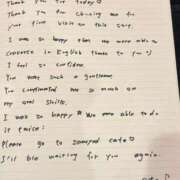 Thank you for today♡
Thank you for choosing me for
your time visit to this stay.
I was so happy then we were able
converse in English thanks to you :)
I feel so confident.
You were such a gentleman
You complimented me so much on
my oral skills.
I was so happy # We were able to do
it twice!
Please go to cafe♡
I'll be waiting for you again.